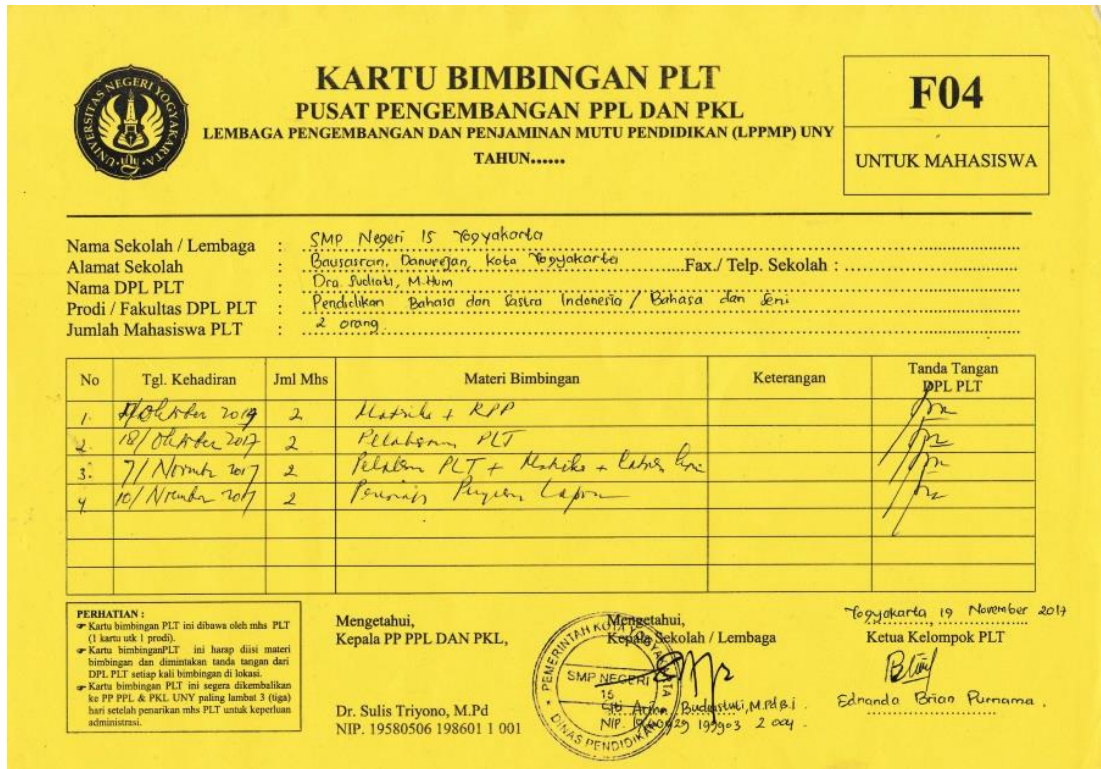 UNIVERSITAS NEGERI YOGYAKARTA
KARTU BIMBINGAN PLT
PUSAT PENGEMBANGAN PPL DAN PKL
LEMBAGA PENGEMBANGAN DAN PENJAMINAN MUTU PENDIDIKAN (LPPMP) UNY
TAHUN......
F04
UNTUK MAHASISWA
Nama Sekolah / Lembaga : SMP Negeri 15 Yogyakarta
Alamat Sekolah : Bausasran, Danurejan, Kota Yogyakarta Fax./ Telp. Sekolah :
Nama DPL PLT : Dra. Sudiati, M.Hum
Prodi / Fakultas DPL PLT : Pendidikan Bahasa dan Sastra Indonesia / Bahasa dan Seni
Jumlah Mahasiswa PLT : 2 orang
No Tgl. Kehadiran Jml Mhs Materi Bimbingan Keterangan Tanda Tangan DPL PLT
1. Oktober 2 Matriks + RPP
2. 18/ Oktober 2017 2 PLT
3. 7/ 2017 2 PLT + +
4 10/ 2017 2
PERHATIAN :
Kartu bimbingan PLT ini dibawa oleh mhs PLT
(1 kartu utk 1 prodi).
Kartu bimbinganPLT ini harap diisi materi
bimbingan dan dimintakan tanda tangan dari
DPL PLT setiap kali bimbingan di lokasi.
Kartu bimbingan PLT ini segera dikembalikan
ke PP PPL & PKL UNY paling lambat 3 (tiga)
hari setelah penarikan mhs PLT untuk keperluan
administrasi.
Mengetahui,
Kepala PP PPL DAN PKL,
Dr. Sulis Triyono, M.Pd
NIP. 19580506 198601 1 001
Mengetahui,
Kepala Sekolah / Lembaga
PEMERINTAH KOTA YOGYAKARTA
SMP NEGERI
15
DINAS PENDIDIKAN
M.Pd.B.I
NIP. 199903 2 004
Yogyakarta 19 November 2017
Ketua Kelompok PLT
Ednanda Brian Purnama